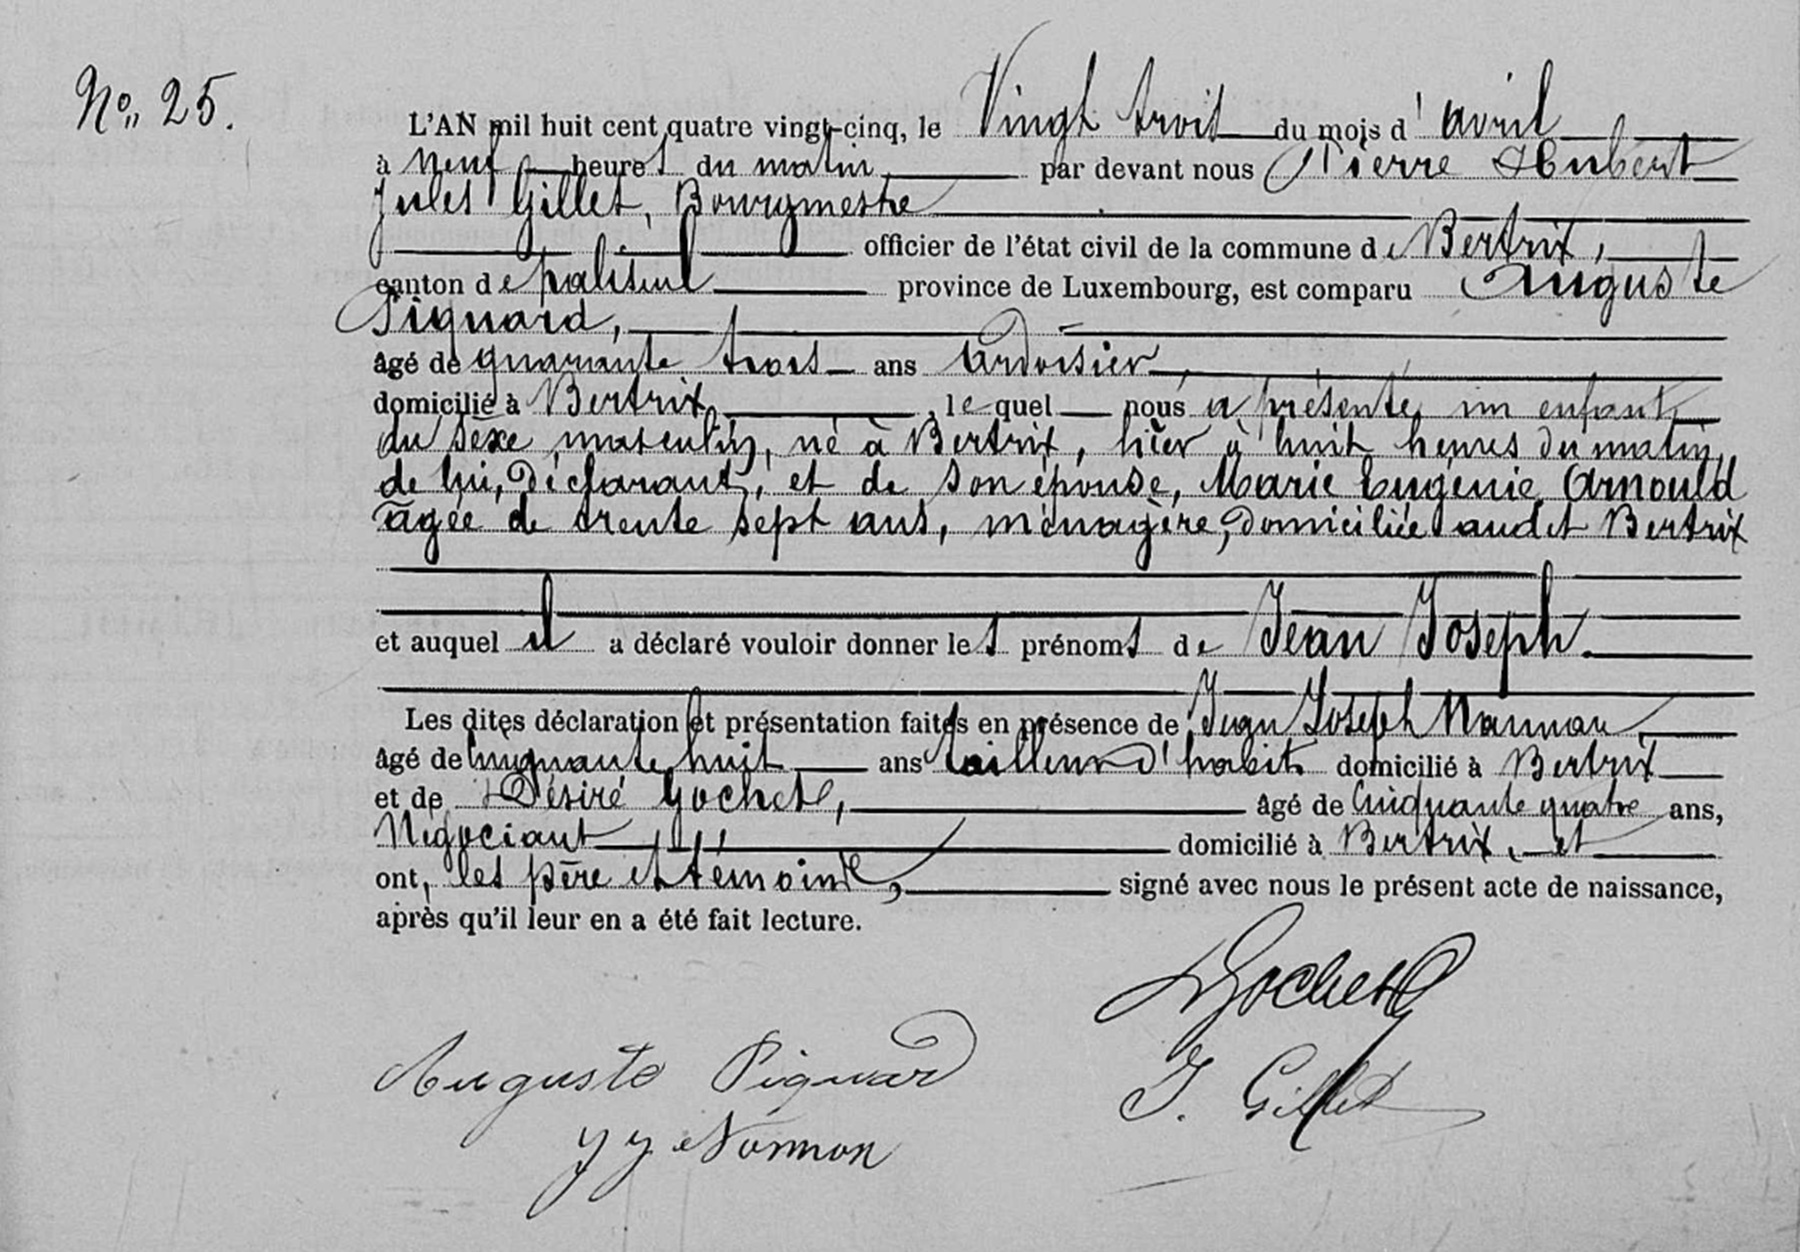 No. 25.
L'AN mil huit cent quatre vingt-cinq, le Vingt trois du mois d'avril
à neuf heures du matin par devant nous Pierre Hubert
Jules Gillet, Bourgmestre
officier de l'état civil de la commune de Bertrix,
canton de paliseul province de Luxembourg, est comparu Auguste
Pignard,
âgé de quarante trois ans ardoisier,
domicilié à Bertrix, lequel nous a présenté un enfant
du sexe masculin, né à Bertrix, hier à huit heures du matin,
de lui, déclarant, et de son épouse, Marie Eugénie Arnould
âgée de trente sept ans, ménagère, domiciliée audit Bertrix
et auquel il a déclaré vouloir donner les prénoms de Jean Joseph.
Les dites déclaration et présentation faites en présence de Jean Joseph Nannan,
âgé de Cinquante huit ans tailleur d'habits domicilié à Bertrix
et de Désiré Gochet, âgé de Cinquante quatre ans,
Négociant domicilié à Bertrix, et
ont, les père et témoins, signé avec nous le présent acte de naissance,
après qu'il leur en a été fait lecture.
D Gochet
Auguste Pignard J. Gillet